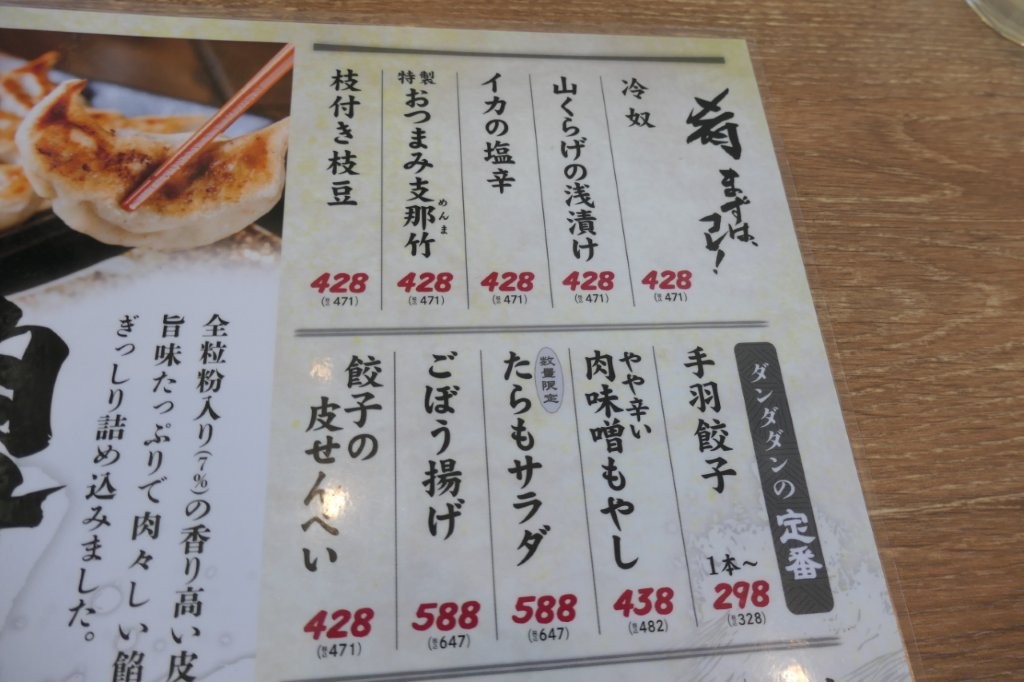 肴 まずは、コレ!
冷奴
428
(税込471)
山くらげの浅漬け
428
(税込471)
イカの塩辛
428
(税込471)
特製
おつまみ支那竹
めんま
428
(税込471)
枝付き枝豆
428
(税込471)
ダンダダンの定番
手羽餃子
1本〜
298
(税込328)
やや辛い
肉味噌もやし
438
(税込482)
数量限定
たらもサラダ
588
(税込647)
ごぼう揚げ
588
(税込647)
餃子の
皮せんべい
428
(税込471)
全粒粉入り(7%)の香り高い皮
旨味たっぷりで肉々しい餡
ぎっしり詰め込みました。